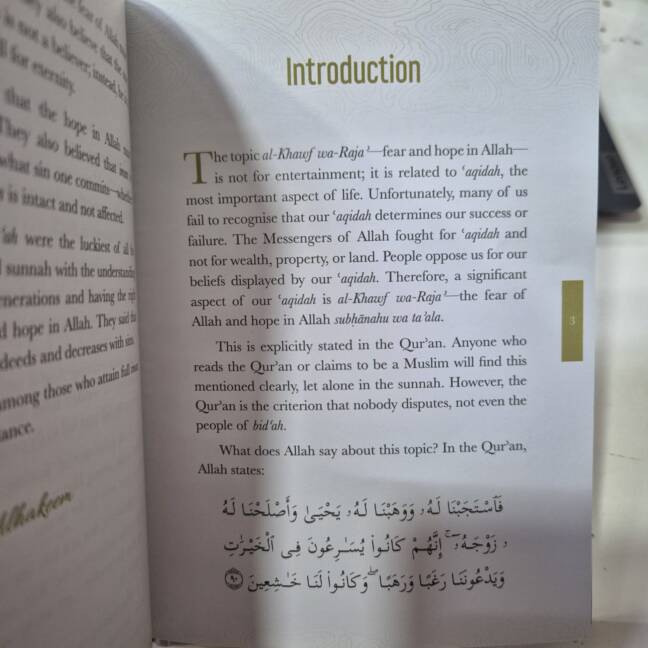 fear of Allah
they also believe that the
is not a believer; instead, he is
for eternity.
that the hope in Allah
They also believed that
what sin one commits—
is intact and not affected.
were the luckiest of all
sunnah with the understanding
and having the right
hope in Allah. They said that
deeds and decreases with sin.
among those who attain full
Alhakeem
Introduction
The topic al-Khawf wa-Raja'—fear and hope in Allah—
is not for entertainment; it is related to ʿaqidah, the
most important aspect of life. Unfortunately, many of us
fail to recognise that our ʿaqidah determines our success or
failure. The Messengers of Allah fought for ʿaqidah and
not for wealth, property, or land. People oppose us for our
beliefs displayed by our ʿaqidah. Therefore, a significant
aspect of our ʿaqidah is al-Khawf wa-Raja'—the fear of
Allah and hope in Allah subḥānahu wa taʿala.
This is explicitly stated in the Qur'an. Anyone who
reads the Qur'an or claims to be a Muslim will find this
mentioned clearly, let alone in the sunnah. However, the
Qur'an is the criterion that nobody disputes, not even the
people of bidʿah.
What does Allah say about this topic? In the Qur'an,
Allah states:
فَٱسْتَجَبْنَا لَهُۥ وَوَهَبْنَا لَهُۥ يَحْيَىٰ وَأَصْلَحْنَا لَهُ
ۥ زَوْجَهُۥٓ ۚ إِنَّهُمْ كَانُوا۟ يُسَـٰرِعُونَ فِى ٱلْخَيْرَٰتِ
وَيَدْعُونَنَا رَغَبًا وَرَهَبًا ۖ وَكَانُوا۟ لَنَا خَـٰشِعِينَ ٩٠
3